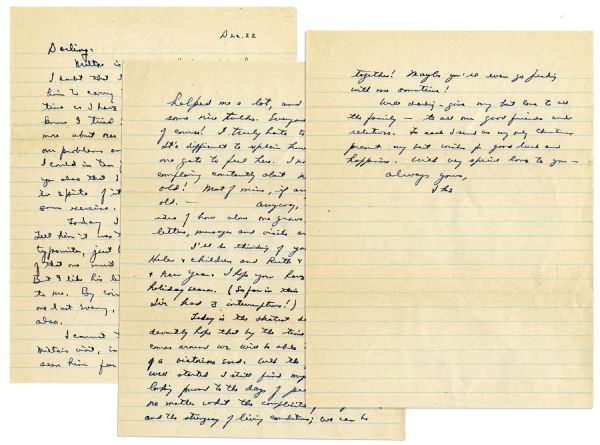 Dec. 22
Darling:
Milton is
I doubt that I
him to carry
time as I have
know I tried
more about our
our problems an
I could in ten
you also that I
in spite of it
some services.
Today I
Tell him it was
typewriter, just
of that one must
But I like his le
to me. By coin
me last evening,
also.
I cannot
Milton's visit, in
seen him for
helped me a lot, and
some nice talks. Everyone
of course! I truly hate to
It's difficult to explain how
one gets to feel here. I
complaining constantly about
old! Most of mine, if an
old. — Anyway,
idea of how alone one grows
letters, messages and visits an
I'll be thinking of you
Helen & children and Ruth &
& New Year. I hope you have
holiday season. (So far in this
I've had 3 interruptions!)
Today is the shortest da
devoutly hope that by the time
comes around we will be able
of a victorious end. With the
well started I still find my
looking forward to the days of pea
no matter what the complexities,
and the stringency of living conditions; we can be
together! Maybe you'll even go fishing
with me sometime!
Well darling - give my best love to all
the family — to all our good friends and
relatives. To each I send as my only Christmas
present my best wishes for good luck and
happiness. With very special love to you —
always yours,
Ike